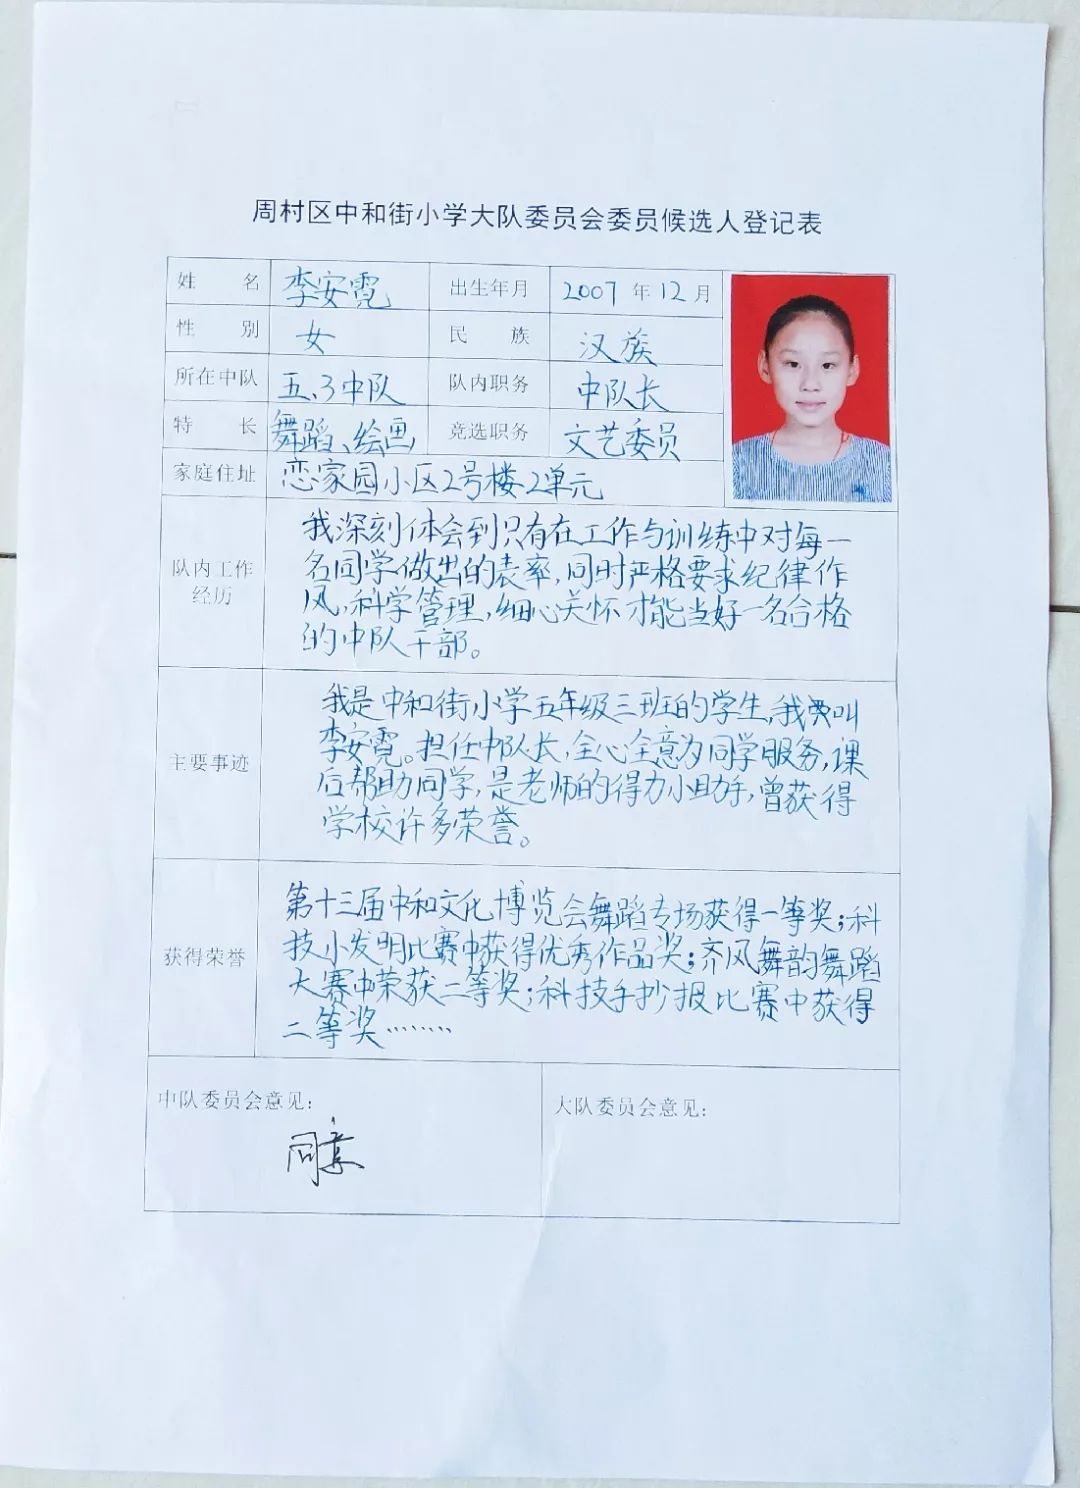 周村区中和街小学大队委员会委员候选人登记表
姓 名 李安霓 出生年月 2007 年 12 月
性 别 女 民 族 汉族
所在中队 五.3中队 队内职务 中队长
特 长 舞蹈、绘画 竞选职务 文艺委员
家庭住址 恋家园小区2号楼2单元
队内工作
经历
我深刻体会到只有在工作与训练中对每一
名同学做出的表率,同时严格要求纪律作
风,科学管理,细心关怀才能当好一名合格
的中队干部。
主要事迹
我是中和街小学五年级三班的学生,我叫
李安霓。担任中队长,全心全意为同学服务,课
后帮助同学,是老师的得力小助手,曾获得
学校许多荣誉。
获得荣誉
第十三届中和文化博览会舞蹈专场获得一等奖;科
技小发明比赛中获得优秀作品奖;齐风舞韵舞蹈
大赛中荣获二等奖;科技手抄报比赛中获得
二等奖········
中队委员会意见:
同意
大队委员会意见: